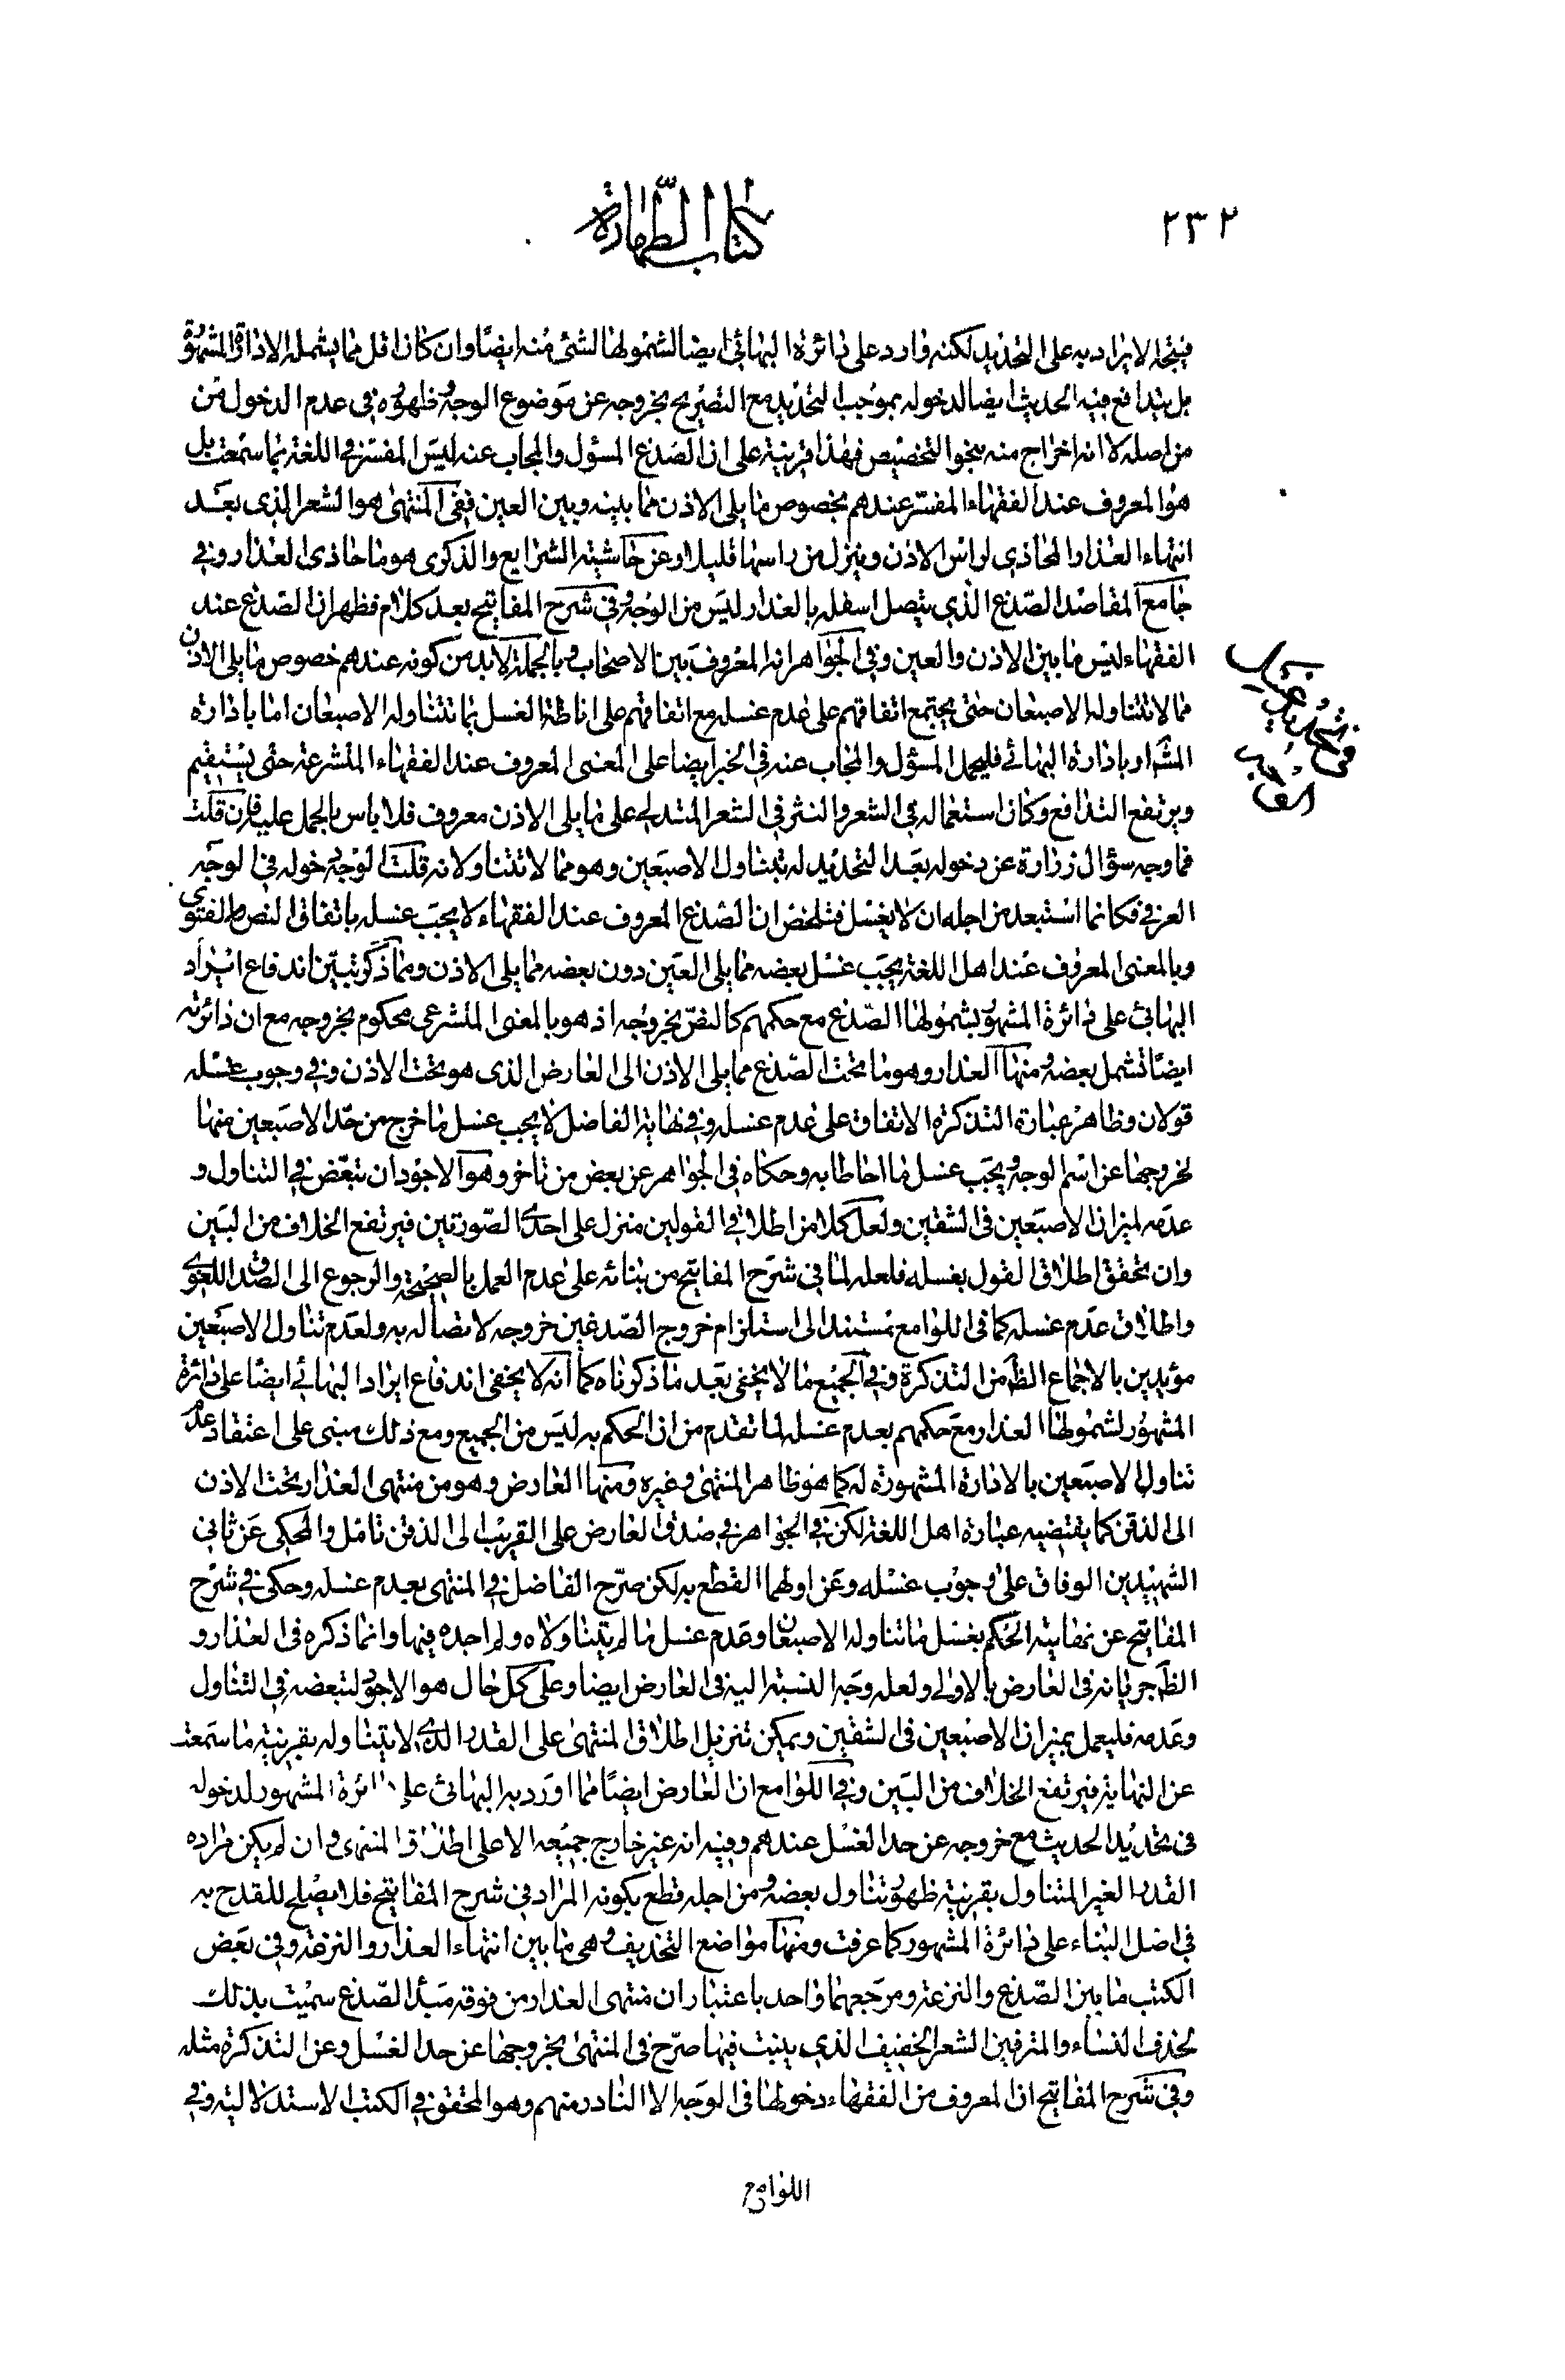 ٢٣٢
كتاب الطهارة
فيتجه الايراد به على التحديد لكنه وارد على دائرة البهائي ايضا لشمولها لشئ منه ايضا وان كان اقل مما يشمله الادارة المشهورة
بل يتدافع فيه الحديث ايضا لدخوله بموجب التحديد مع التصريح بخروجه عن موضوع الوجه وظهوره في عدم الدخول من
من اصله لا انه اخراج منه بنحو التخصيص فهذا قرينة على ان الصدغ المسؤل والمجاب عنه ليس المفسر في اللغة بما سمعت بل
هو المعروف عند الفقهاء المفسر عندهم بخصوص ما يلي الاذن مما بينه وبين العين ففي المنتهى هو الشعر الذي بعد
انتهاء العذار المحاذي لراس الاذن وينزل من راسها قليلا وعن حاشية الشرايع والذكرى هو ما حاذى العذار وفي
جامع المقاصد الصدغ الذي يتصل اسفله بالعذار ليس من الوجه وفي شرح المفاتيح بعد كلام فظهر ان الصدغ عند
الفقهاء ليس ما بين الاذن والعين وفي الجواهر انه المعروف بين الاصحاب وبالجملة لابد من كونه عندهم خصوص ما يلي الاذن
مما لا تتناوله الاصبعان حتى يجتمع اتفاقهم على عدم غسله مع اتفاقهم على اناطة الغسل بما تتناوله الاصبعان اما بادارة
المش او بادارة البهائي فليحمل المسؤل والمجاب عنه في الخبر ايضا على المعنى المعروف عند الفقهاء المتشرعة حتى يستقيم
ويرتفع التدافع وكان استعماله في الشعر والنثر في الشعر المتدلي على ما يلي الاذن معروف فلا باس بالحمل عليه فان قلت
فما وجه سؤال زرارة عن دخوله بعد التحديد له بتناول الاصبعين وهو مما لا تتناولانه قلت لوجه دخوله في الوجه
العرفي فكانما استبعد من اجله ان لا يغسل فتلخص ان الصدغ المعروف عند الفقهاء لا يجب غسله باتفاق النص والفتوى
وبالمعنى المعروف عند اهل اللغة يجب غسل بعضه مما يلي العين دون بعضه مما يلي الاذن ومما ذكر تبين اندفاع ايراد
البهائي على دائرة المشهور بشمولها الصدغ مع حكمهم كالنص بخروجه اذ هو بالمعنى المتشرعي محكوم بخروجه مع ان دائرته
ايضا تشمل بعضه ومنها العذار وهو ما تحت الصدغ مما يلي الاذن الى العارض الذي هو تحت الاذن وفي وجوب غسله
قولان وظاهر عبارة التذكرة الاتفاق على عدم غسله وفي نهاية الفاضل لا يجب غسل ما خرج من حد الاصبعين منها
لخروجها عن اسم الوجه ويجب غسل ما احاطا به وحكاه في الجواهر عن بعض من تاخر وهو الاجود ان تبعض في التناول و
عدمه لميزان الاصبعين في الشقين ولعل كلا من اطلاقي القولين منزل على احدى الصورتين فيرتفع الخلاف من البين
وان تحقق اطلاق القول بغسله فلعله لما في شرح المفاتيح من بنائه على عدم العمل بالصحيحة والرجوع الى الصدق اللغوي
واطلاق عدم غسله كما في اللوامع مستند الى استلزام خروج الصدغين خروجه لاتصاله به ولعدم تناول الاصبعين
مؤيدين بالاجماع الظ من التذكرة وفي الجميع ما لا يخفى بعد ما ذكرناه كما انه لا يخفى اندفاع ايراد البهائي ايضا على دائرة
المشهور لشمولها العذار مع حكمهم بعدم غسله لما تقدم من ان الحكم به ليس من الجميع ومع ذلك مبني على اعتقاد عدم
تناول الاصبعين بالادارة المشهورة له كما هو ظاهر المنتهى وغيره ومنها العارض وهو من منتهى العذار تحت الاذن
الى الذقن كما يقتضيه عبارة اهل اللغة لكن في الجواهر في صدق العارض على القريب الى الذقن تامل والمحكي عن ثاني
الشهيدين الوفاق على وجوب غسله وعن اولهما القطع به لكن صرح الفاضل في المنتهى بعدم غسله وحكى في شرح
المفاتيح عن نهايته الحكم بغسل ما تناوله الاصبعان وعدم غسل ما لم يتناولاه ولم اجده فيها وانما ذكره في العذار و
الظ جريانه في العارض بالاولى ولعله وجه النسبة اليه في العارض ايضا وعلى كل حال هو الاجود لتبعضه في التناول
وعدمه فليعمل بميزان الاصبعين في الشقين ويمكن تنزيل اطلاق المنتهى على القدر الذي لا يتناوله بقرينة ما سمعت
عن النهاية فيرتفع الخلاف من البين وفي اللوامع ان العارض ايضا مما اورد به البهائي على دائرة المشهور لدخوله
في تحديد الحديث مع خروجه عن حد الغسل عندهم وفيه انه غير خارج جميعه الا على اطلاق المنتهى وان لم يكن مراده
القدر الغير المتناول بقرينة ظهور تناول بعضه ومن اجله قطع بكونه المراد في شرح المفاتيح فلا يصلح للقدح به
في اصل البناء على دائرة المشهور كما عرفت ومنها مواضع التحذيف وهي ما بين انتهاء العذار والنزعة وفي بعض
الكتب ما بين الصدغ والنزعة ومرجعهما واحد باعتبار ان منتهى العذار من فوقه مبدأ الصدغ سميت بذلك
لحذف النساء والمترفين الشعر الخفيف الذي ينبت فيها صرح في المنتهى بخروجها عن حد الغسل وعن التذكرة مثله
وفي شرح المفاتيح ان المعروف من الفقهاء دخولها في الوجه الا النادر منهم وهو المحقق في الكتب الاستدلالية وفي
اللوامع